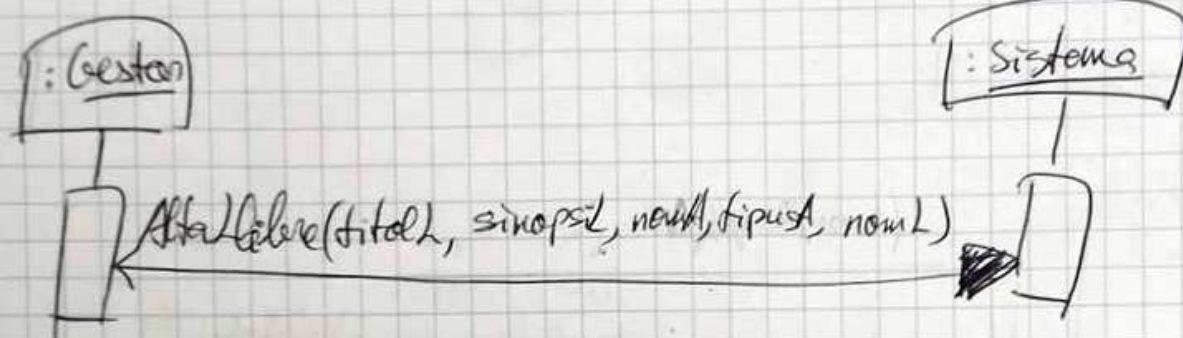 : Gestor
: Sistema
AltaLlibre(titolL, sinopsiL, nomA, tipusA, nomL)